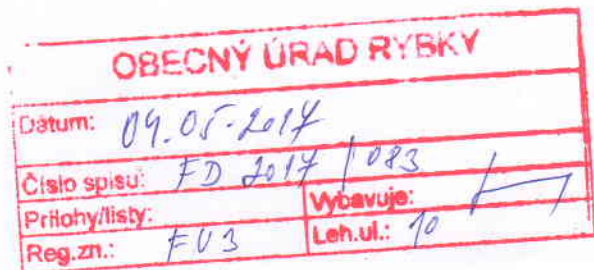 OBECNÝ ÚRAD RYBKY
Dátum: 04.05.2017
Číslo spisu: FD 2017/083
Prílohy/listy: Vybavuje:
Reg.zn.: FU3 Leh.ul.: 10